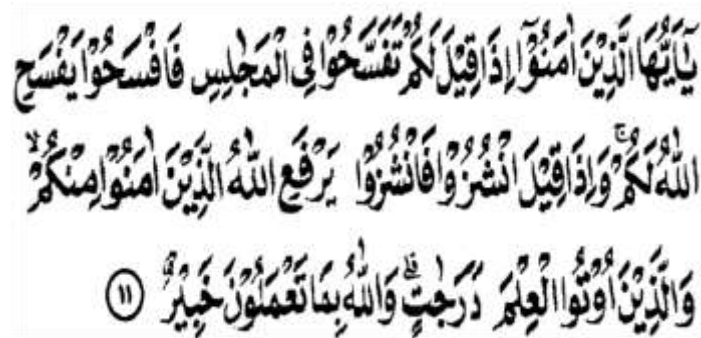 يٰٓاَيُّهَا الَّذِيْنَ اٰمَنُوْٓا اِذَا قِيْلَ لَكُمْ تَفَسَّحُوْا فِى الْمَجٰلِسِ فَافْسَحُوْا يَفْسَحِ
اللّٰهُ لَكُمْۚ وَاِذَا قِيْلَ انْشُزُوْا فَانْشُزُوْا يَرْفَعِ اللّٰهُ الَّذِيْنَ اٰمَنُوْا مِنْكُمْۙ
وَالَّذِيْنَ اُوْتُوا الْعِلْمَ دَرَجٰتٍۗ وَاللّٰهُ بِمَا تَعْمَلُوْنَ خَبِيْرٌ ١١